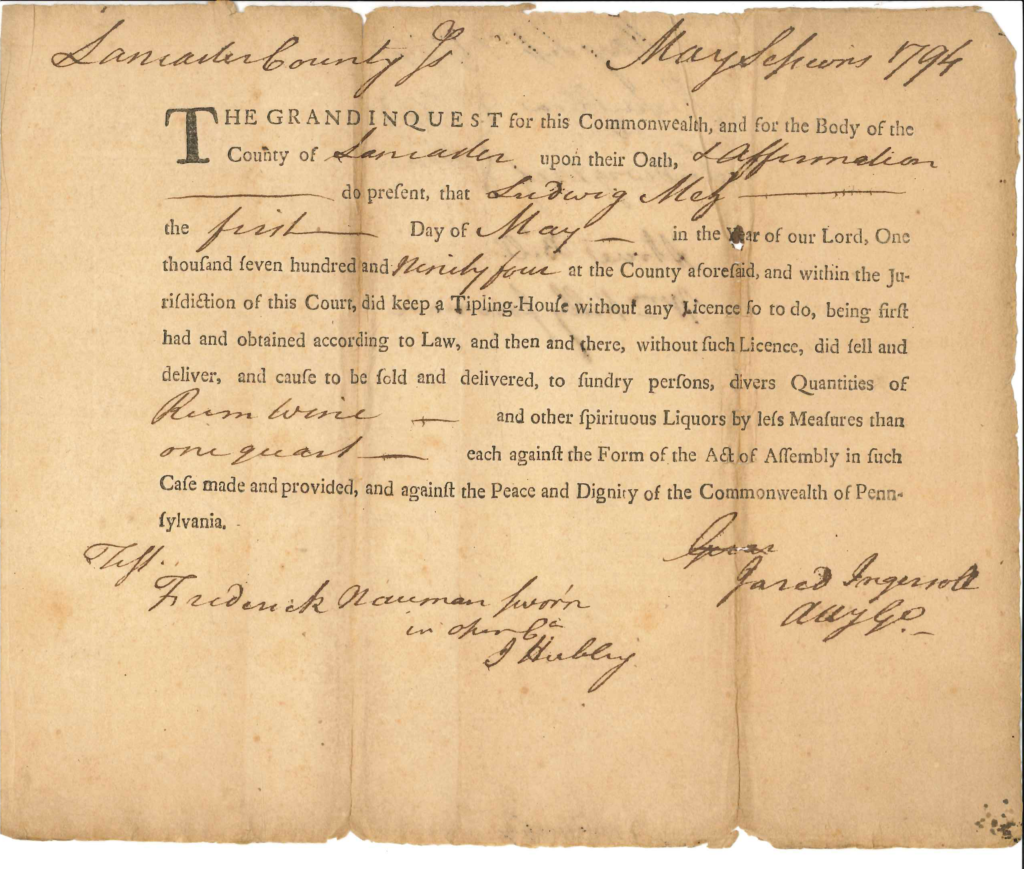 Lancaster County Ss May Sessions 1794
THE GRAND INQUEST for this Commonwealth, and for the Body of the
County of Lancaster upon their Oath, & Affirmation
do preſent, that Ludwig Mez
the first Day of May in the Year of our Lord, One
thouſand ſeven hundred and Ninety four at the County aforeſaid, and within the Ju-
riſdiction of this Court, did keep a Tipling-Houſe without any Licence ſo to do, being firſt
had and obtained according to Law, and then and there, without ſuch Licence, did ſell and
deliver, and cauſe to be ſold and delivered, to ſundry perſons, divers Quantities of
Rum Wine and other ſpirituous Liquors by leſs Meaſures than
one quart each againſt the Form of the Act of Aſſembly in ſuch
Caſe made and provided, and againſt the Peace and Dignity of the Commonwealth of Penn-
ſylvania.
Test.
Jared Ingersoll
Frederick Nauman sworn
Atty Gl.
in open Ct
J Hubley